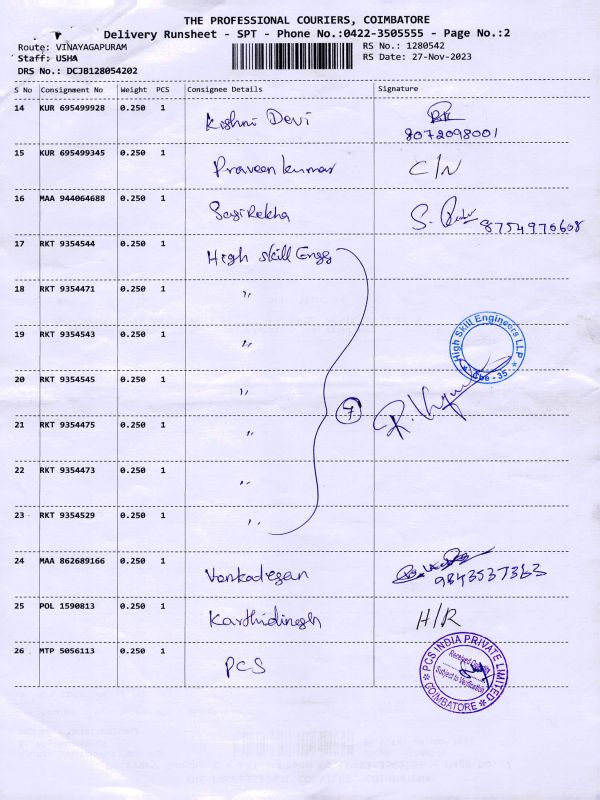 THE PROFESSIONAL COURIERS, COIMBATORE
Delivery Runsheet - SPT - Phone No.:0422-3505555 - Page No.:2
Route: VINAYAGAPURAM RS No.: 1280542
Staff: USHA RS Date: 27-Nov-2023
DRS No.: DCJB128054202
S No Consignment No Weight PCS Consignee Details Signature
14 KUR 695499928 0.250 1 Kishni Devi
8072098001
15 KUR 695499345 0.250 1 Praveen kumar C/N
16 MAA 944064688 0.250 1 Sasirekha S. 8754976608
17 RKT 9354544 0.250 1 High skill Engg
18 RKT 9354471 0.250 1 "
19 RKT 9354543 0.250 1 "
High Skill Engineers LLP
* Cbe - 35 *
20 RKT 9354545 0.250 1 "
7
21 RKT 9354475 0.250 1 "
22 RKT 9354473 0.250 1 "
23 RKT 9354529 0.250 1 "
24 MAA 862689166 0.250 1 Vankadesan
9843537363
25 POL 1590813 0.250 1 Karthidinesh H/R
26 MTP 5056113 0.250 1 PCS
PCS INDIA PRIVATE LIMITED
Subject to Verification
* COIMBATORE *